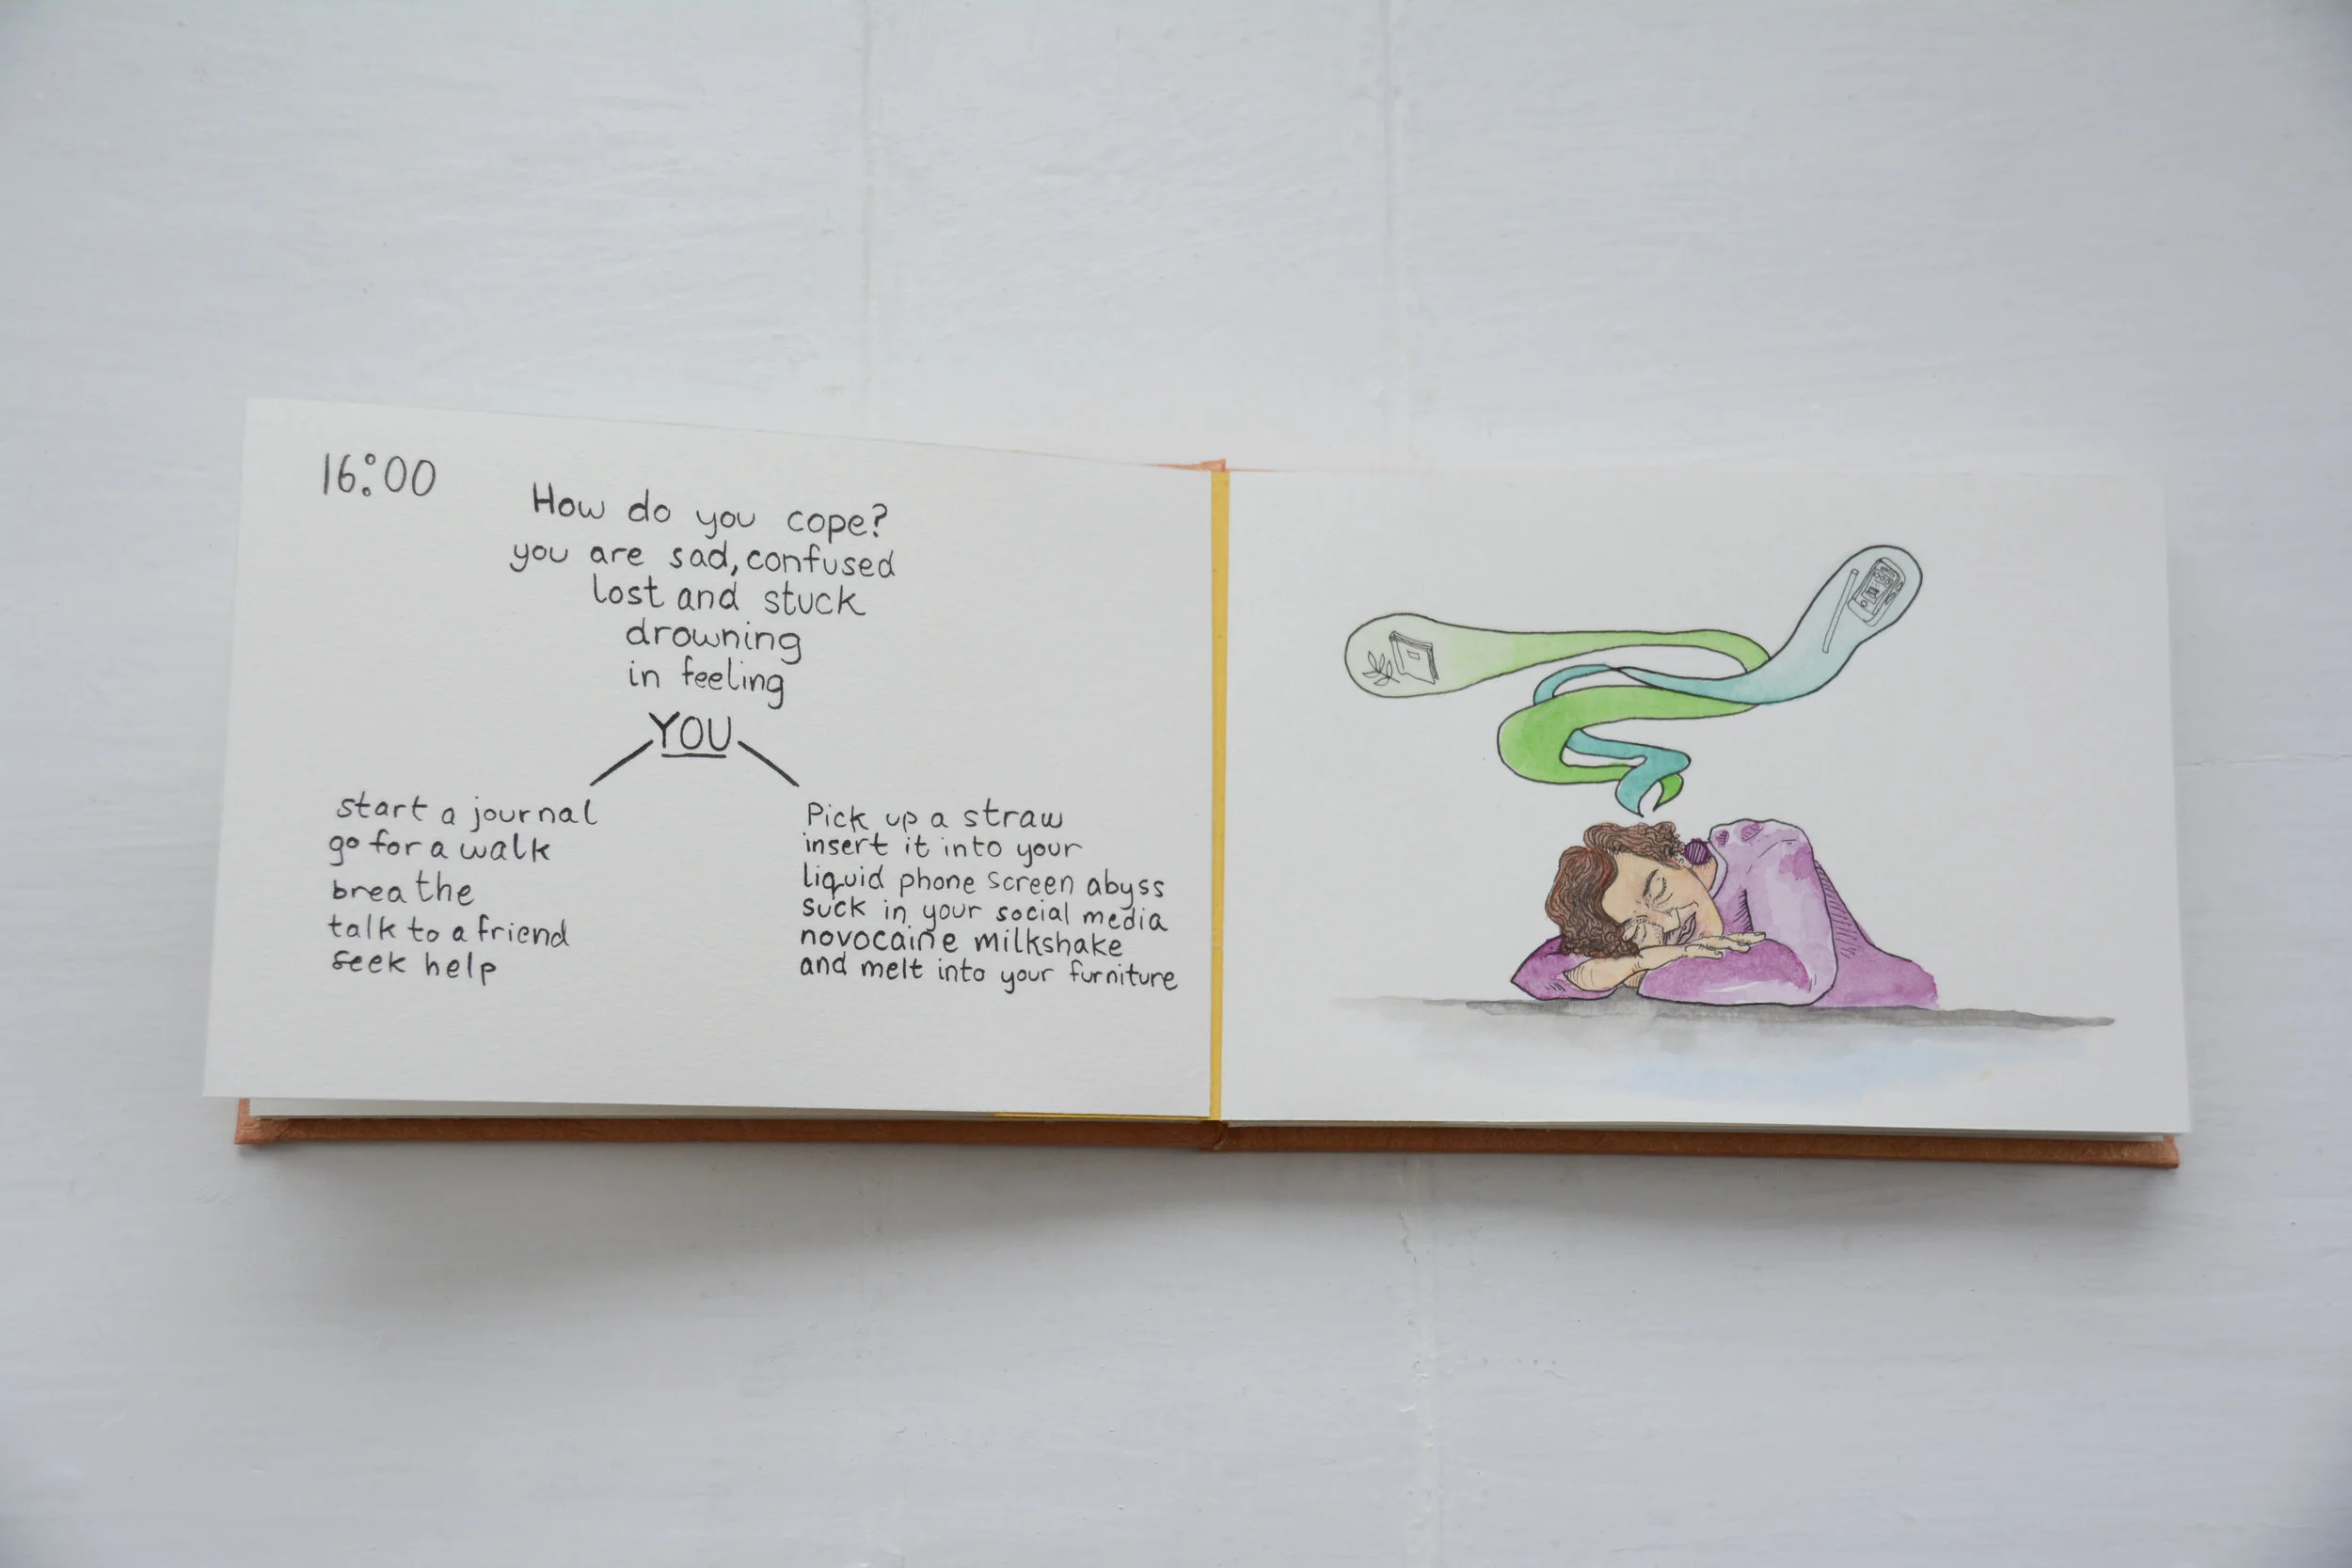 16:00
How do you cope?
you are sad, confused
lost and stuck
drowning
in feeling
YOU
start a journal
go for a walk
breathe
talk to a friend
seek help
Pick up a straw
insert it into your
liquid phone screen abyss
suck in your social media
novocaine milkshake
and melt into your furniture